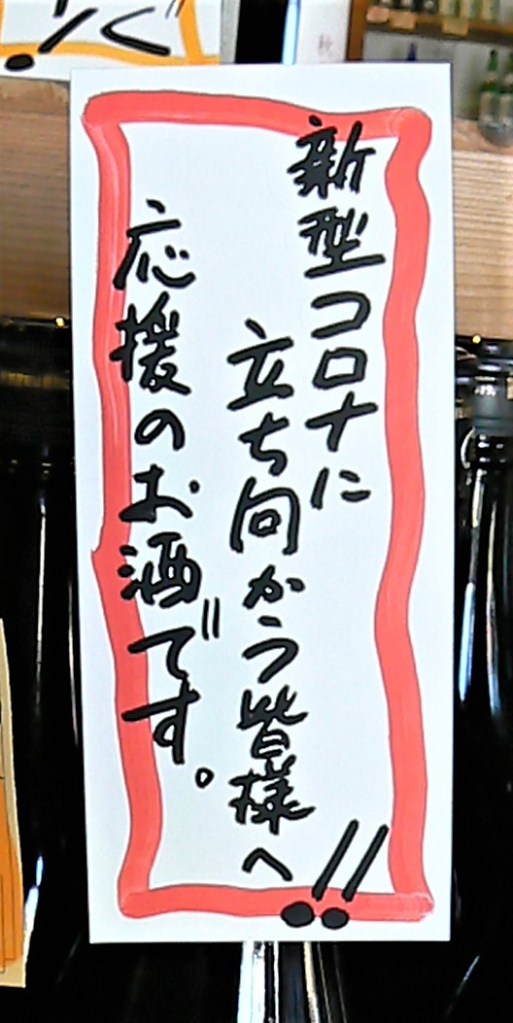 新型コロナに
立ち向かう皆様へ!!
応援のお酒です。